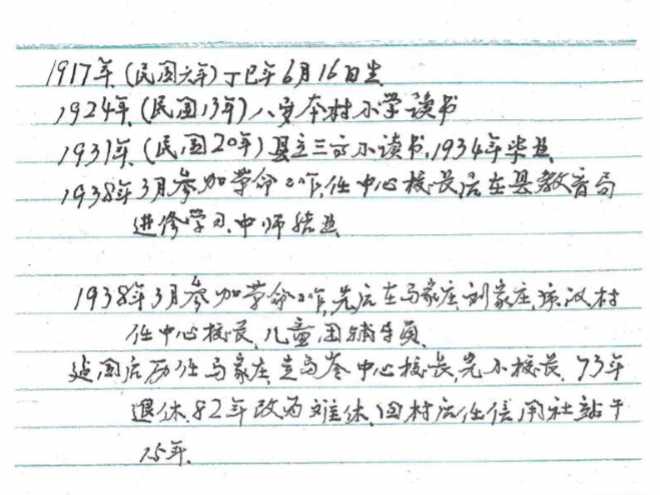 1917年(民国六年)丁巳年6月16日生
1924年(民国13年)八岁本村小学读书
1931年(民国20年)县立三高小读书,1934年毕业
1938年3月参加革命工作,任中心校长,后在县教育局
进修学习,中师结业
1938年3月参加革命工作,先后在马家庄,刘家庄,村
任中心校长,儿童团辅导员.
建国后历任马家庄,走马岺中心校长,完小校长.73年
退休.82年改为离休,回村后任信用社站干
15年.